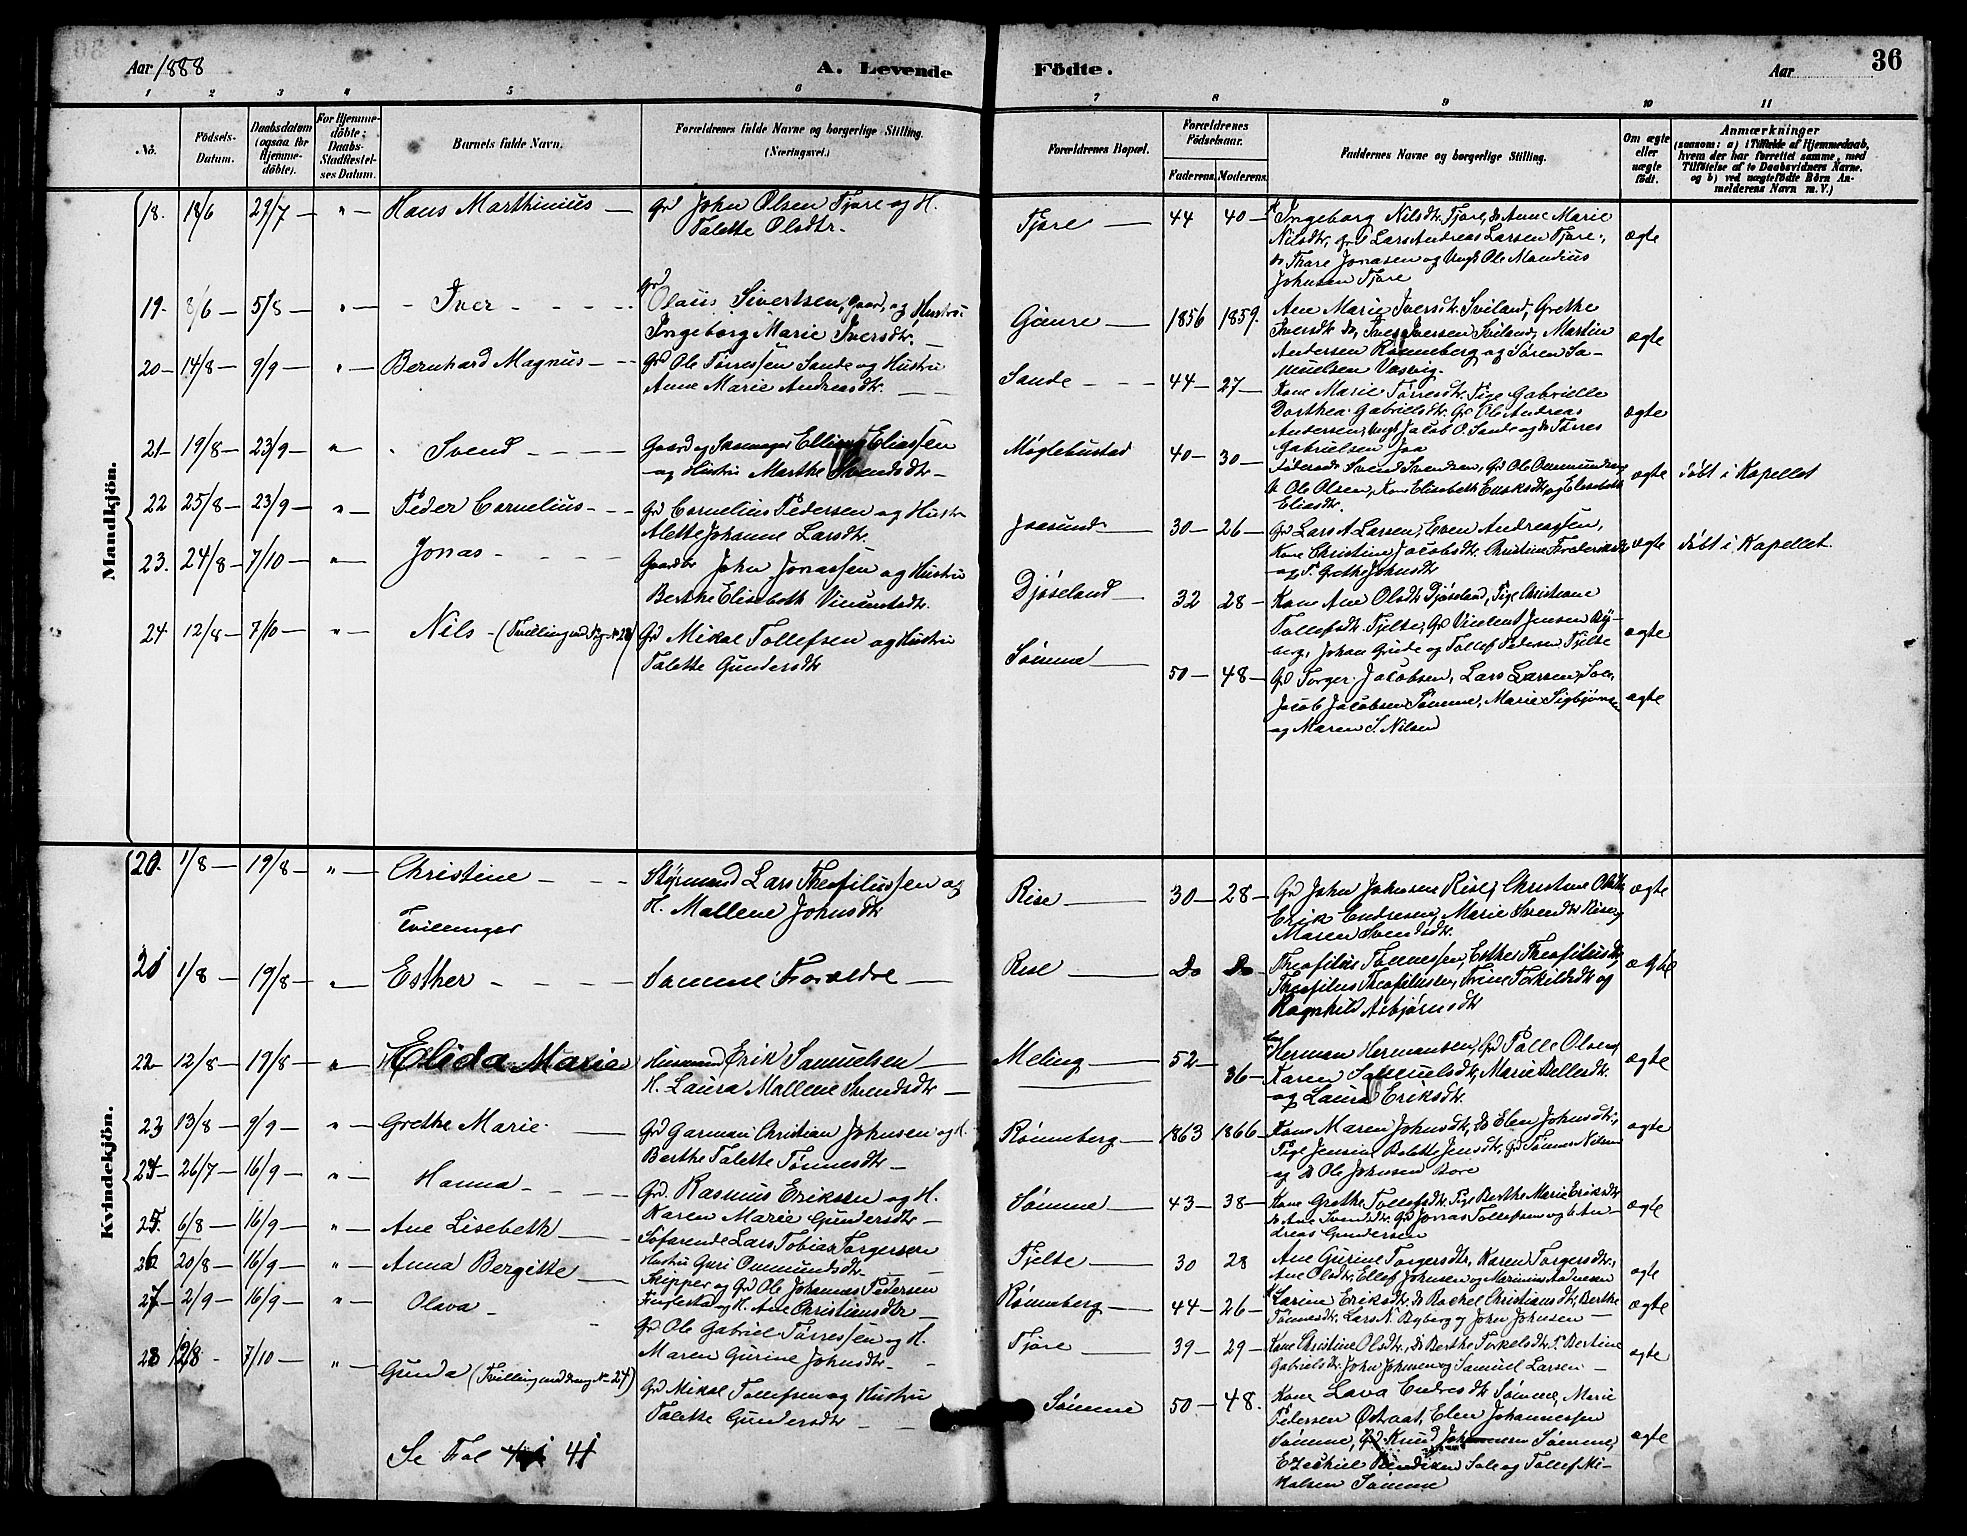 Aar 1888
A. Levende
Födte.
Aar
36
1 2 3 4 5 6 7 8 9 10 11
No.
Födsels-Datum.
Daabsdatum (ogsaa for Hjemme-döbte).
For Hjemme-döbte; Daabs-Stadfæstel-ses Datum.
Barnets fulde Navn.
Forældrenes fulde Navne og borgerlige Stilling.
(Næringsvei.)
Forældrenes Bopæl.
Forældrenes Födselsaar.
Faderens. Moderens.
Faddernes Navne og borgerlige Stilling.
Om ægte eller uægte födt.
Anmærkninger
(saasom: a) i Tilfælde af Hjemmedaab,
hvem der har forrettet samme, med
Tilföielse af to Daabsvidners Navne,
og b) ved uægtefödte Börn An-
melderens Navn m. V.)
Mandkjön.
18. 18/6 29/7 " Hans Marthinius Gd John Olsen Tjøre og H.
Talette Olsdtr.
Tjøre 44 40 Ingeborg Nilsdtr. Tjøre, do Anne Marie
Nilsdtr, Lars Andreas Larsen Tjøre,
do Thore Jonasen og Ungk Ole Mandius
Johnsen Tjøre
ægte
19. 8/6 5/8 " Iver Olaus Sivertsen, Gaard, og Hustru
Ingeborg Marie Iversdtr.
Gimre 1856 1859. Ane Marie Iversdtr. Sviland, Grethe
Iversdtr do, Iver Iversen Sviland, Martin
Andersen Rønneberg og Søren Sa-
muelsen Vasvig.
ægte
20 14/8 9/9 " Bernhard Magnus Gd Ole Tørressen Sande og Hustru
Anne Marie Andreasdtr.
Sande 44 27 Kone Marie Tørresdtr. Pige Gabrielle
Dorthea Gabrielsdtr. Gd Ole Andreas
Andersen, Ungk Jacob O. Sande og do Tørres
Gabrielsen Joa
ægte
21 19/8 23/9 " Svend Gaard og Elling Eliassen
og Hustru Marthe Svendsdtr
Møglebustad 40 30 Svend Svendsen, Gd Ole Ommundsen
do Ole Olsen, Kone Elisabeth og Elisabeth
Eliasdtr.
ægte døbt i Kapellet
22 25/8 23/9 " Peder Cornelius Gd Cornelius Pedersen og Hustr
Alette Johanne Larsdtr.
Joasund 30 26 Gd Lars A Larsen, Even Andreassen,
Kone Christine Jacobsdtr. Christine Frederiksdtr
og P. Grethe Johnsdtr
ægte døbt i Kapellet.
23. 24/8 7/10 " Jonas Gaardbr John Jonassen og Hustru
Berthe Elisabeth Vincentsdtr.
Djøseland 32 28 Kone Ane Olsdtr Djøseland, Pige Christiane
Tollefsdtr. Tjelte, Gd Vincent Jensen By-
berg, Johan Grude og Tollef Pedersen Tjelte
ægte
24 12/8 7/10 " Nils (Tvilling med Pige No 28) Gd Mikal Tollefsen og Hustru
Talette Gundersdtr
Sømme 50 48 Gd Torger Jacobsen, Lars Larsen Sole,
Jacob Jacobsen Sømme, Marie Sigbjørnsen
og Maren S. Nilsen
ægte
Kvindekjön.
20. 1/8 19/8 " Christine Styrmand Lars Theofilussen og
H. Mallene Johnsdtr
Tvillinger
Rise 30 28 Gd John Johnsen Rise, Christine Olsdtr
Erik Endresen, Marie Svendsdtr Rise,
Maren Svendsdtr.
ægte
21 1/8 19/8 " Esther Samme Forældre
Rise Do Do Theofilus Tønnessen, Esther Theofilusdtr,
Theofilus Theofilussen, Trine Torkildsdtr og
Ragnhild Asbjørnsdtr
ægte
22 12/8 19/8 " Elida Marie Husmand Erik Samuelsen
H. Laura Mallene Svendsdtr
Meling 52 36 Herman Hermansen, Gd Palle Olsen,
Karen Samuelsdtr, Marie Pellesdtr.
og Laura Eriksdtr.
ægte
23 13/8 9/9 " Grethe Marie Gd Garman Christian Johnsen og H.
Berthe Talette Tønnesdtr
Rønneberg 1863 1866 Kone Maren Johnsdtr, do Elen Johnsdtr,
Pige Jensine Bolette Jensdtr, Gd Tønnes Nilsen
og do Ole Johnsen Bore
ægte
24 26/7 16/9 " Hanna Gd. Rasmus Eriksen og H.
Karen Marie Gundersdtr
Sømme 43 38 Kone Grethe Tollefsdtr. Pige Berthe Marie Eriksdtr
do Ane Svendsdtr. Gd Jonas Tollefsen og An-
dreas Gundersen
ægte
25. 6/8 16/9 " Ane Lisebeth Søfarende Lars Tobias Torgersen
Hustru Guri Ommundsdtr.
Tjelte 30 28 Ane Gurine Torgersdtr, Karen Torgersdtr,
Ane Olsdtr, Ellef Johnsen og Marinius Andersen
ægte
26 20/8 16/9 " Anna Bergitte Skipper og Gd Ole Johannes Pedersen
og H. Ane Christiansdtr
Rønneberg 44 26 Karine Eriksdtr. do Rachel Christiansdtr, Berthe
Tønnesdtr, Lars N. Byberg og John Johnsen
ægte
27 2/9 16/9 " Olava Gd Ole Gabriel Tørressen og H.
Maren Gurine Johnsdtr
Tjøre 39 29 Kone Christine Olsdtr, do Berthe Torkelsdtr. P. Bertine
Gabrielsdtr. John Johnsen og Samuel Larsen
ægte
28 12/8 7/10 " Gunda (Tvilling med dreng No 24) Gd Mikal Tollefsen og Hustru
Talette Gundersdtr
Sømme 50 48. Kone Lava Endresdtr Sømme, Marie
Pedersen Østraat, Elen Johannessen
Sømme, Gd. Knud Johannesen Sømme,
Ezechiel Sole og Tollef Mi-
kalsen Sømme
ægte
Se Fol 41